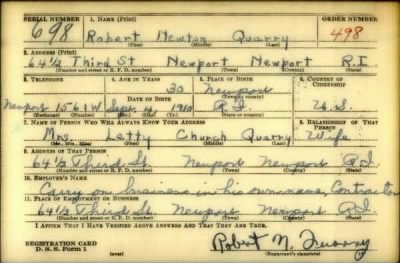 SERIAL NUMBER 1. NAME (Print) ORDER NUMBER
698 Robert Newton Quarry 498
(First) (Middle) (Last)
2. ADDRESS (Print)
64½ Third St Newport Newport R.I.
(Number and street or R. F. D. number) (Town) (County) (State)
3. TELEPHONE 4. AGE IN YEARS 5. PLACE OF BIRTH 6. COUNTRY OF CITIZENSHIP
30 Newport
DATE OF BIRTH (Town or county)
Newport 1561W Sept 4, 1910 R I U.S.
(Exchange) (Number) (Mo.) (Day) (Yr.) (State or country)
7. NAME OF PERSON WHO WILL ALWAYS KNOW YOUR ADDRESS 8. RELATIONSHIP OF THAT PERSON
Mrs. Letty Church Quarry Wife
(Mr., Mrs., Miss) (First) (Middle) (Last)
9. ADDRESS OF THAT PERSON
64½ Third St. Newport Newport R.I.
(Number and street or R. F. D. number) (Town) (County) (State)
10. EMPLOYER'S NAME
Carry on business in his own name, Contractor
11. PLACE OF EMPLOYMENT OR BUSINESS
64½ Third St. Newport Newport R.I.
(Number and street or R. F. D. number) (Town) (County) (State)
I AFFIRM THAT I HAVE VERIFIED ABOVE ANSWERS AND THAT THEY ARE TRUE.
REGISTRATION CARD
D. S. S. Form 1 (over) Robert N. Quarry
(Registrant's signature)